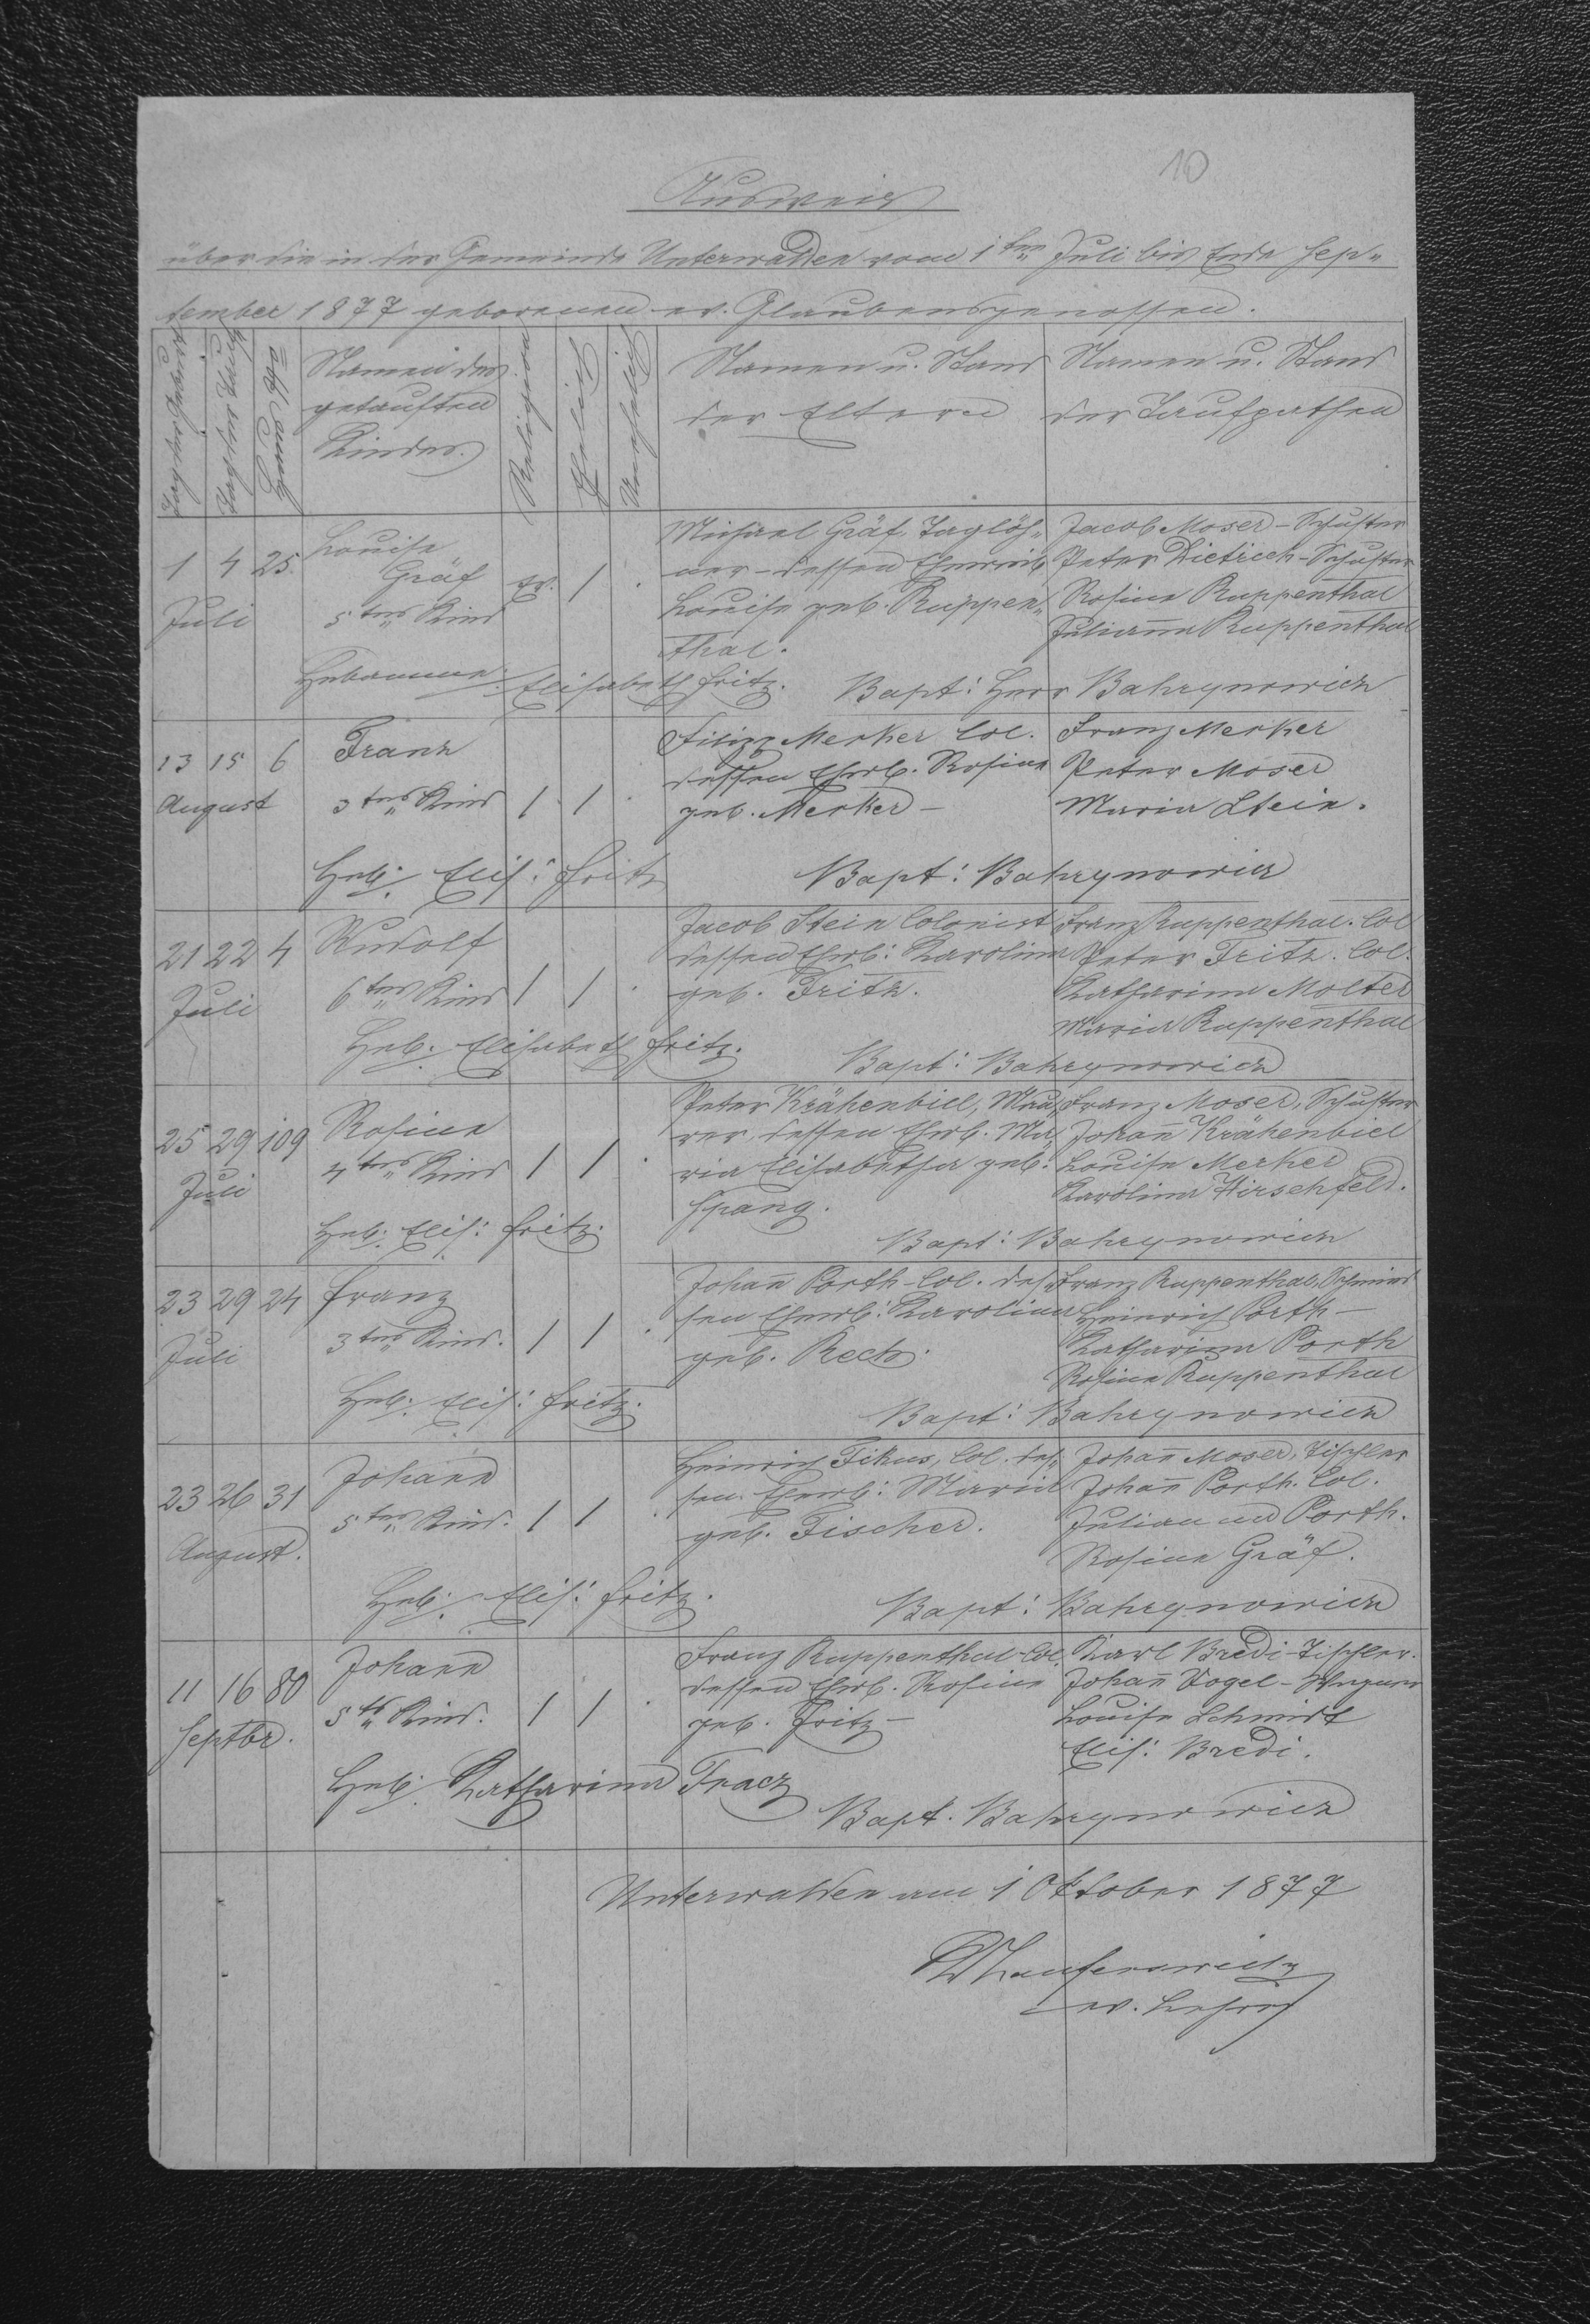 10
Ausweis
über die in der Gemeinde Unterwalden vom 1ten Juli bis Ende Sep„
tember 1877 geborenen ev. Glaubensgenossen.
Tag der Geburt
Tag der Taufe
Haus №
Namen des
getauften
Kindes.
Religion
Ehelich
Unehelich
Namen u. Stand
der Eltern
Namen u. Stand
der Taufpathen
1 4 25.
Juli
Louise
Gräf
5tes Kind
ev. / .
Michael Gräf, Taglöh„
ner – dessen Eheweib
Louise geb. Ruppen„
thal.
Jacob Moser – Schuster
Peter Dietrich – Schuster
Rosina Ruppenthal
Julianna Ruppenthal
Hebamme: Elisabeth Fritz. Bapt: Herr Bahrynowicz
13 15 6
August
Franz
3tes Kind
/ / .
Filipp Merker Col.
dessen Ehwb. Rosina
geb. Merker –
Franz Merker
Peter Moser
Maria Stein.
Heb: Elis: Fritz Bapt: Bahrynowicz
21 22 4
Juli
Rudolf
6tes Kind
/ / .
Jacob Stein Colonist
dessen Ehwb: Karolina
geb. Fritz.
Franz Ruppenthal. Col
Peter Fritz. Col.
Katharina Molter
Maria Ruppenthal
Heb: Elisabeth Fritz. Bapt: Bahrynowicz
25 29 109
Juli
Rosina
4tes Kind
/ / .
Peter Krähenbiel, Mau„
rer, dessen Ehwb. Ma„
ria Elisabetha geb:
Spang.
Franz Moser, Schuster
Johañ Krähenbiel
Louise Merker
Karolina Hirschfeld.
Heb: Elis: Fritz. Bapt: Bahrynowicz
23 29 24
Juli
Franz
3tes Kind.
/ / .
Johañ Porth Col. des„
sen Ehewb: Karolina
geb. Rech.
Franz Ruppenthal, Schmied
Heinrich Porth –
Katharina Porth
Rosina Ruppenthal
Heb: Elis: Fritz. Bapt: Bahrynowicz
23 26 31
August.
Johann
5tes Kind.
/ / .
Heinrich Fikus, Col. des„
sen Ehewb: Maria
geb. Fischer.
Johañ Moser, Tischler
Johañ Porth. Col.
Julianna Porth.
Rosina Gräf.
Heb: Elis: Fritz. Bapt: Bahrynowicz
11 16 80
Septbr.
Johann
5tes Kind.
/ / .
Franz Ruppenthal Col.
dessen Ehwb. Rosina
geb. Fritz –
Karl Bredi – Tischler.
Johañ Vogel – Wagner
Louise Schmidt
Elis: Bredi.
Heb: Katharina Tracz
Bapt. Bahrynowicz
Unterwalden am 1 Oktober 1877
ev. Lehrer